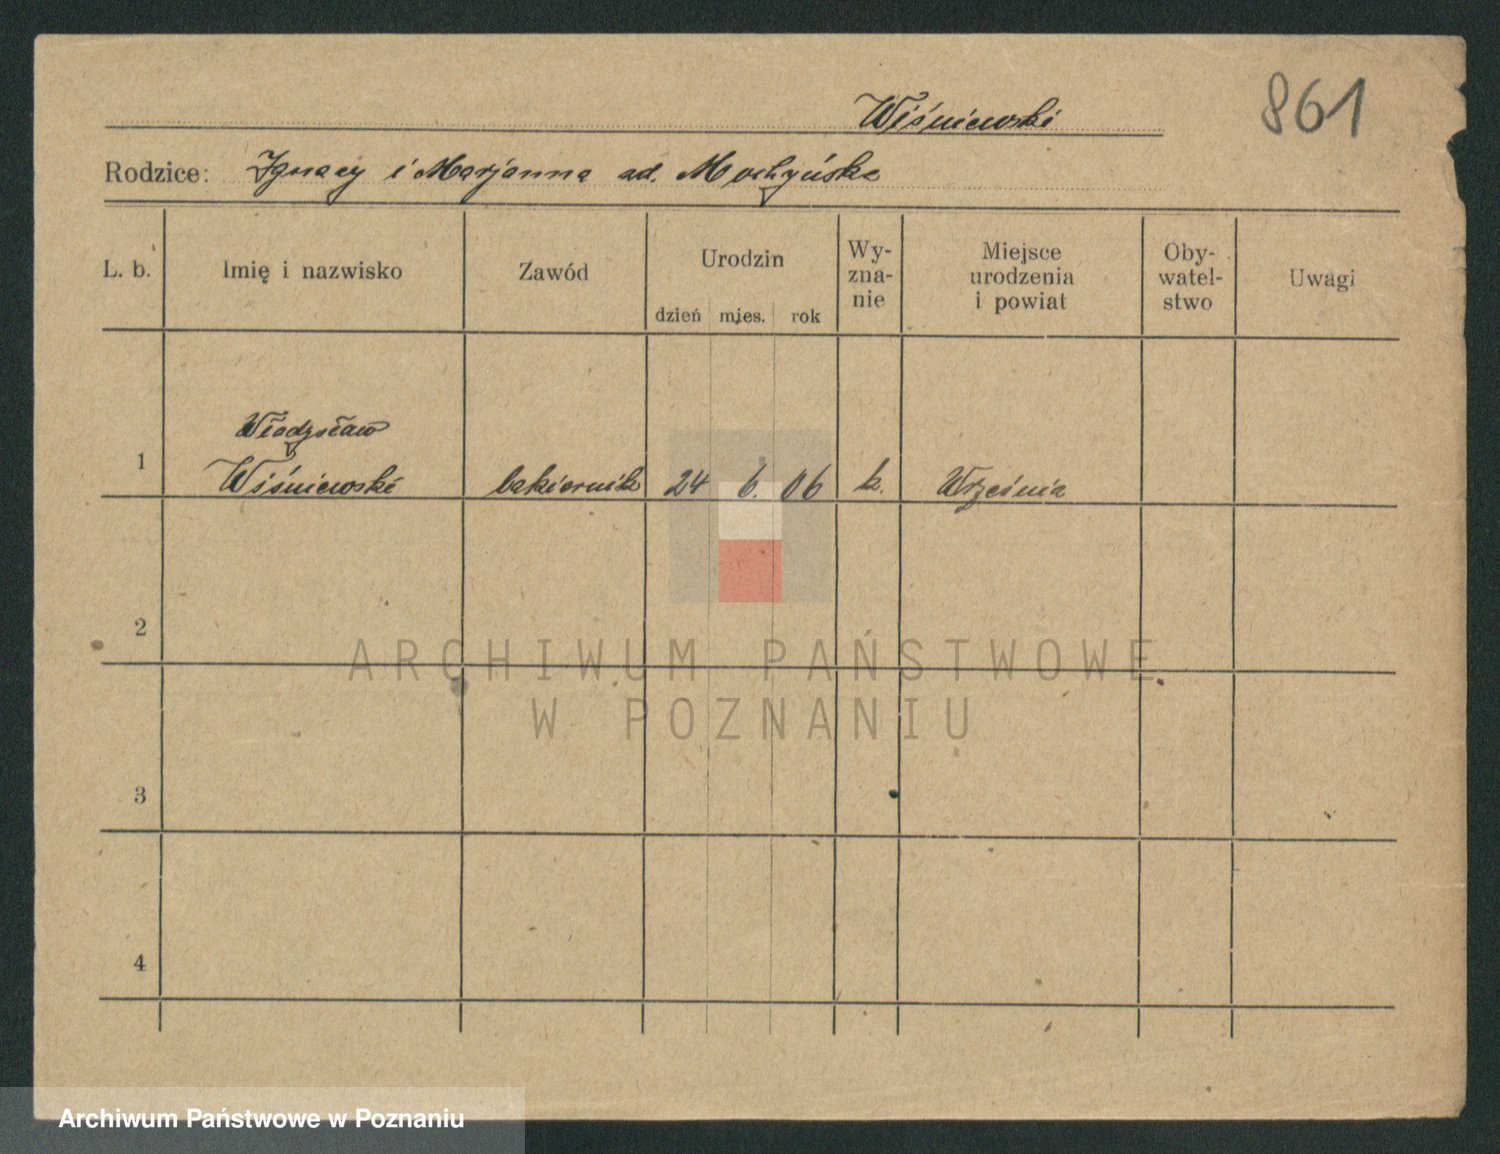 Wiśniewski
861
Rodzice: Ignacy i Marjanna ad.
L. b. Imię i nazwisko Zawód Urodzin dzień mies. rok Wy-zna-nie Miejsce urodzenia i powiat Oby-watel-stwo Uwagi
Władysław
1 Wiśniewski 24 6. 06 k. Września
2
3
4
ARCHIWUM PAŃSTWOWE
W POZNANIU
Archiwum Państwowe w Poznaniu